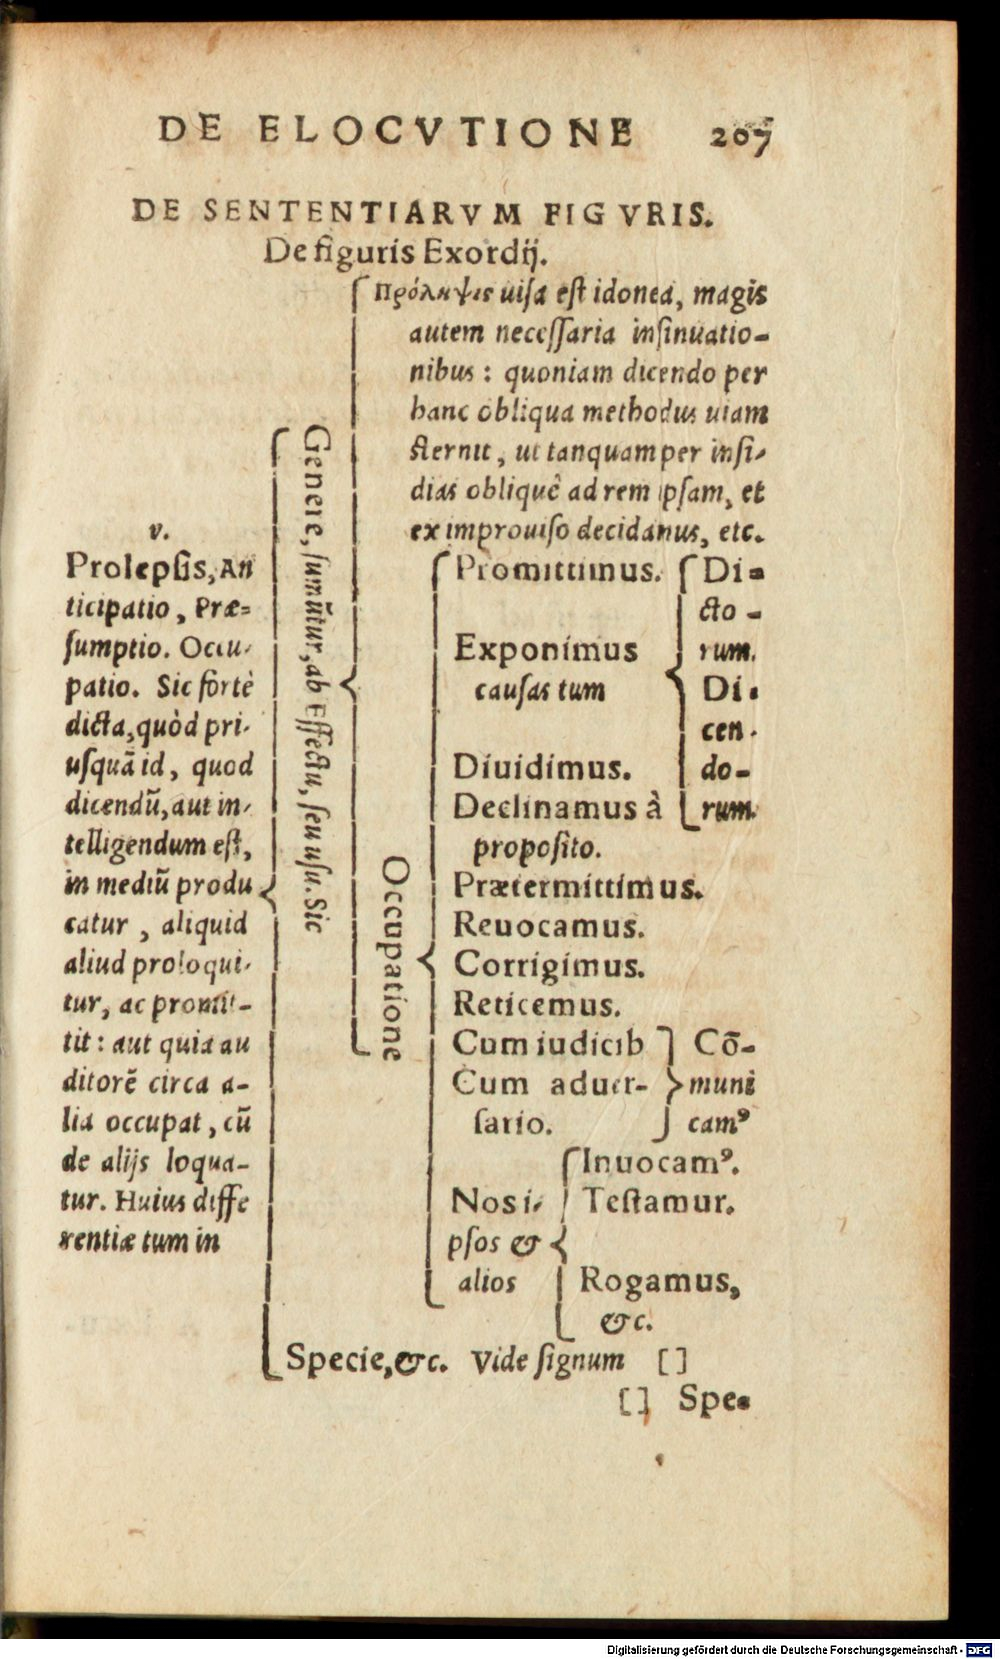 DE ELOCVTIONE 207
DE SENTENTIARVM FIGVRIS.
De figuris Exordij.
v.
Prolepsis, An
ticipatio, Præ=
sumptio. Occu-
patio. Sic fortè
dicta, quòd pri-
usquā id, quod
dicendū, aut in-
telligendum est,
in mediū produ
catur, aliquid
aliud proloqui-
tur, ac promit-
tit: aut quia au
ditorē circa a-
lia occupat, cū
de alijs loqua-
tur. Huius diffe
rentiæ tum in
Genere, sumūtur, ab Effectu, seu usu. Sic
Πρόληψις uisa est idonea, magis
autem necessaria insinuatio-
nibus: quoniam dicendo per
hanc obliqua methodus uiam
sternit, ut tanquam per insi-
dias obliquè ad rem ipsam, et
ex improuiso decidamus, etc.
Occupatione
Promittimus.
Exponimus
causas tum
Di-
cto-
rum.
Di-
cen-
do-
rum.
Diuidimus.
Declinamus à
proposito.
Prætermittimus.
Reuocamus.
Corrigimus.
Reticemus.
Cum iudicib
Cum aduer-
sario.
Cō-
muni
camꝰ
Nos i-
psos &
alios
Inuocamꝰ.
Testamur.
Rogamus,
&c.
Specie, &c. Vide signum []
[] Spe-
Digitalisierung gefördert durch die Deutsche Forschungsgemeinschaft - DFG